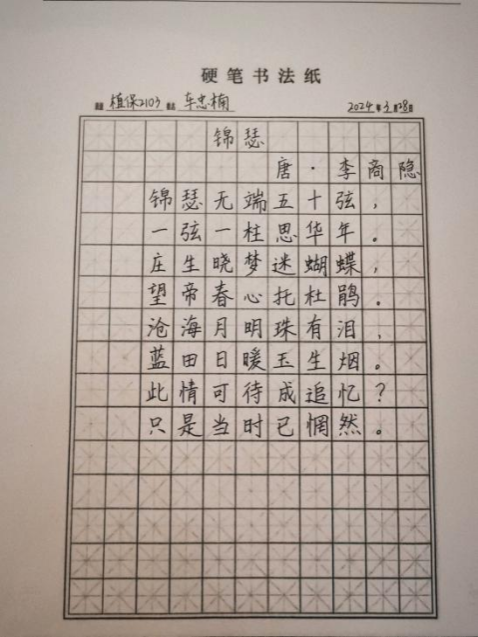 硬笔书法纸
植保2103 车忠楠 2024年3月28日
锦瑟
唐·李商隐
锦瑟无端五十弦，
一弦一柱思华年。
庄生晓梦迷蝴蝶，
望帝春心托杜鹃。
沧海月明珠有泪，
蓝田日暖玉生烟。
此情可待成追忆？
只是当时已惘然。